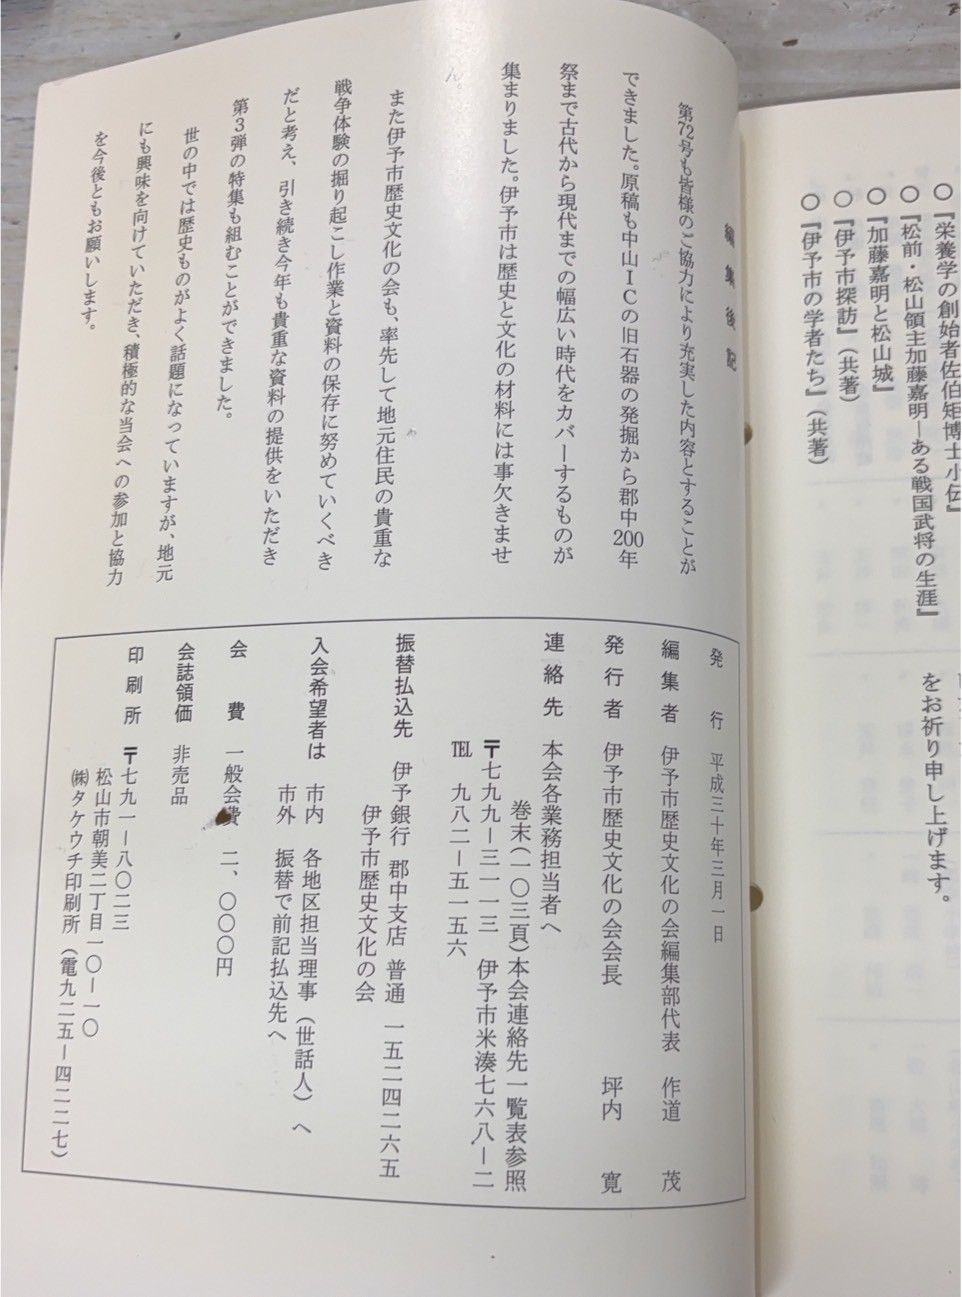 ○『栄養学の創始者佐伯矩博士小伝』
○『松前・松山領主加藤嘉明―ある戦国武将の生涯』
○『加藤嘉明と松山城』
○『伊予市探訪』（共著）
○『伊予市の学者たち』（共著）
をお祈り申し上げます。
編集後記
第72号も皆様のご協力により充実した内容とすることが
できました。原稿も中山ＩＣの旧石器の発掘から郡中200年
祭まで古代から現代までの幅広い時代をカバーするものが
集まりました。伊予市は歴史と文化の材料には事欠きませ
ん。
また伊予市歴史文化の会も、率先して地元住民の貴重な
戦争体験の掘り起こし作業と資料の保存に努めていくべき
だと考え、引き続き今年も貴重な資料の提供をいただき
第３弾の特集も組むことができました。
世の中では歴史ものがよく話題になっていますが、地元
にも興味を向けていただき、積極的な当会への参加と協力
を今後ともお願いします。
発行 平成三十年三月一日
編集者 伊予市歴史文化の会編集部代表 作道 茂
発行者 伊予市歴史文化の会会長 坪内 寛
連絡先 本会各業務担当者へ
巻末（一〇三頁）本会連絡先一覧表参照
〒七九九―三一一三 伊予市米湊七六八―二
℡ 九八二―五一五六
振替払込先 伊予銀行 郡中支店 普通 一五二四二六五
伊予市歴史文化の会
入会希望者は 市内 各地区担当理事（世話人）へ
市外 振替で前記払込先へ
会費 一般会費 二、〇〇〇円
会誌領価 非売品
印刷所 〒七九一―八〇二三
松山市朝美二丁目一〇―一〇
㈱タケウチ印刷所（電九二五―四二二七）